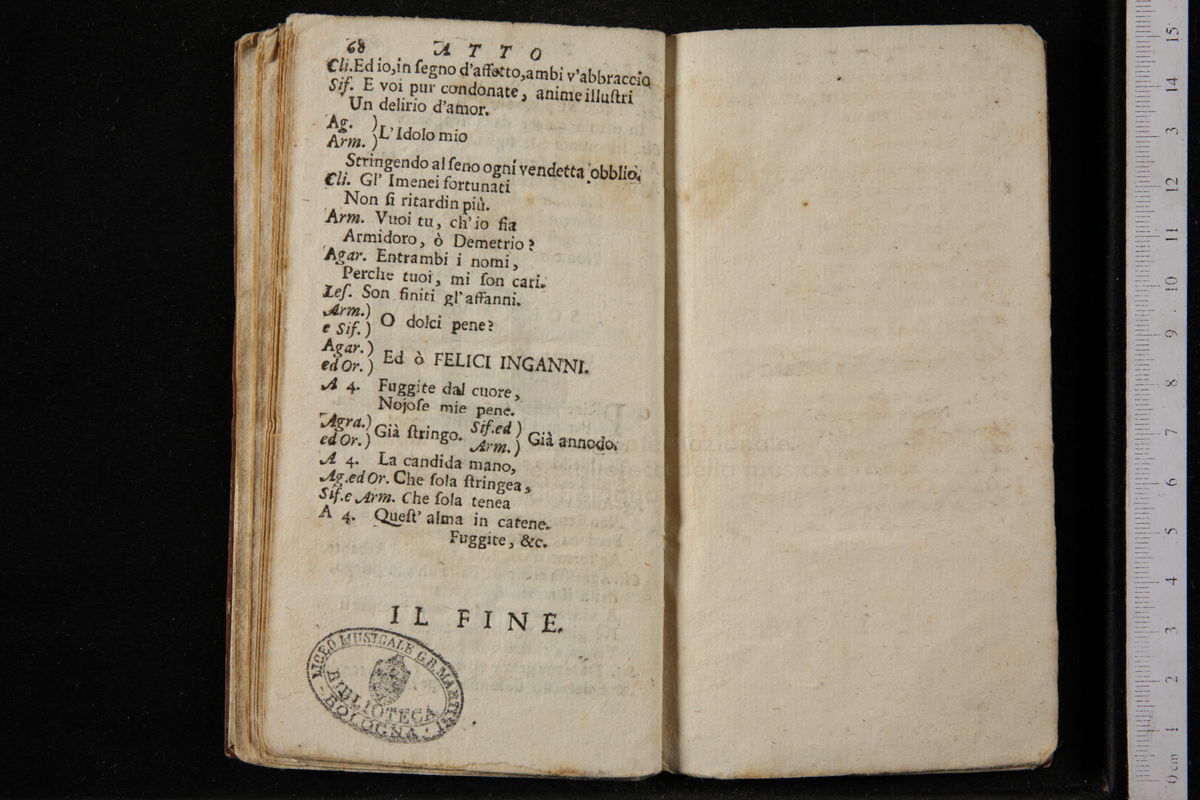 68 ATTO
Cli. Ed io, in ſegno d'affetto, ambi v'abbraccio
Sif. E voi pur condonate, anime illuſtri
Un delirio d'amor.
Ag. )
Arm. ) L'Idolo mio
Stringendo al ſeno ogni vendetta obblio.
Cli. Gl' Imenei fortunati
Non ſi ritardin più.
Arm. Vuoi tu, ch'io ſia
Armidoro, ò Demetrio?
Agar. Entrambi i nomi,
Perche tuoi, mi ſon cari.
Leſ. Son finiti gl'affanni.
Arm.)
e Sif. ) O dolci pene?
Agar. )
ed Or. ) Ed ò FELICI INGANNI.
A 4. Fuggite dal cuore,
Nojoſe mie pene.
Agra.) Già ſtringo. Sif. ed )
ed Or. ) Arm. ) Già annodo.
A 4. La candida mano,
Ag. ed Or. Che ſola ſtringea,
Sif. e Arm. Che ſola tenea
A 4. Queſt' alma in catene.
Fuggite, &c.
IL FINE.
LICEO MUSICALE G.B. MARTINI
BIBLIOTECA
BOLOGNA
0 cm 1 2 3 4 5 6 7 8 9 10 11 12 13 14 15